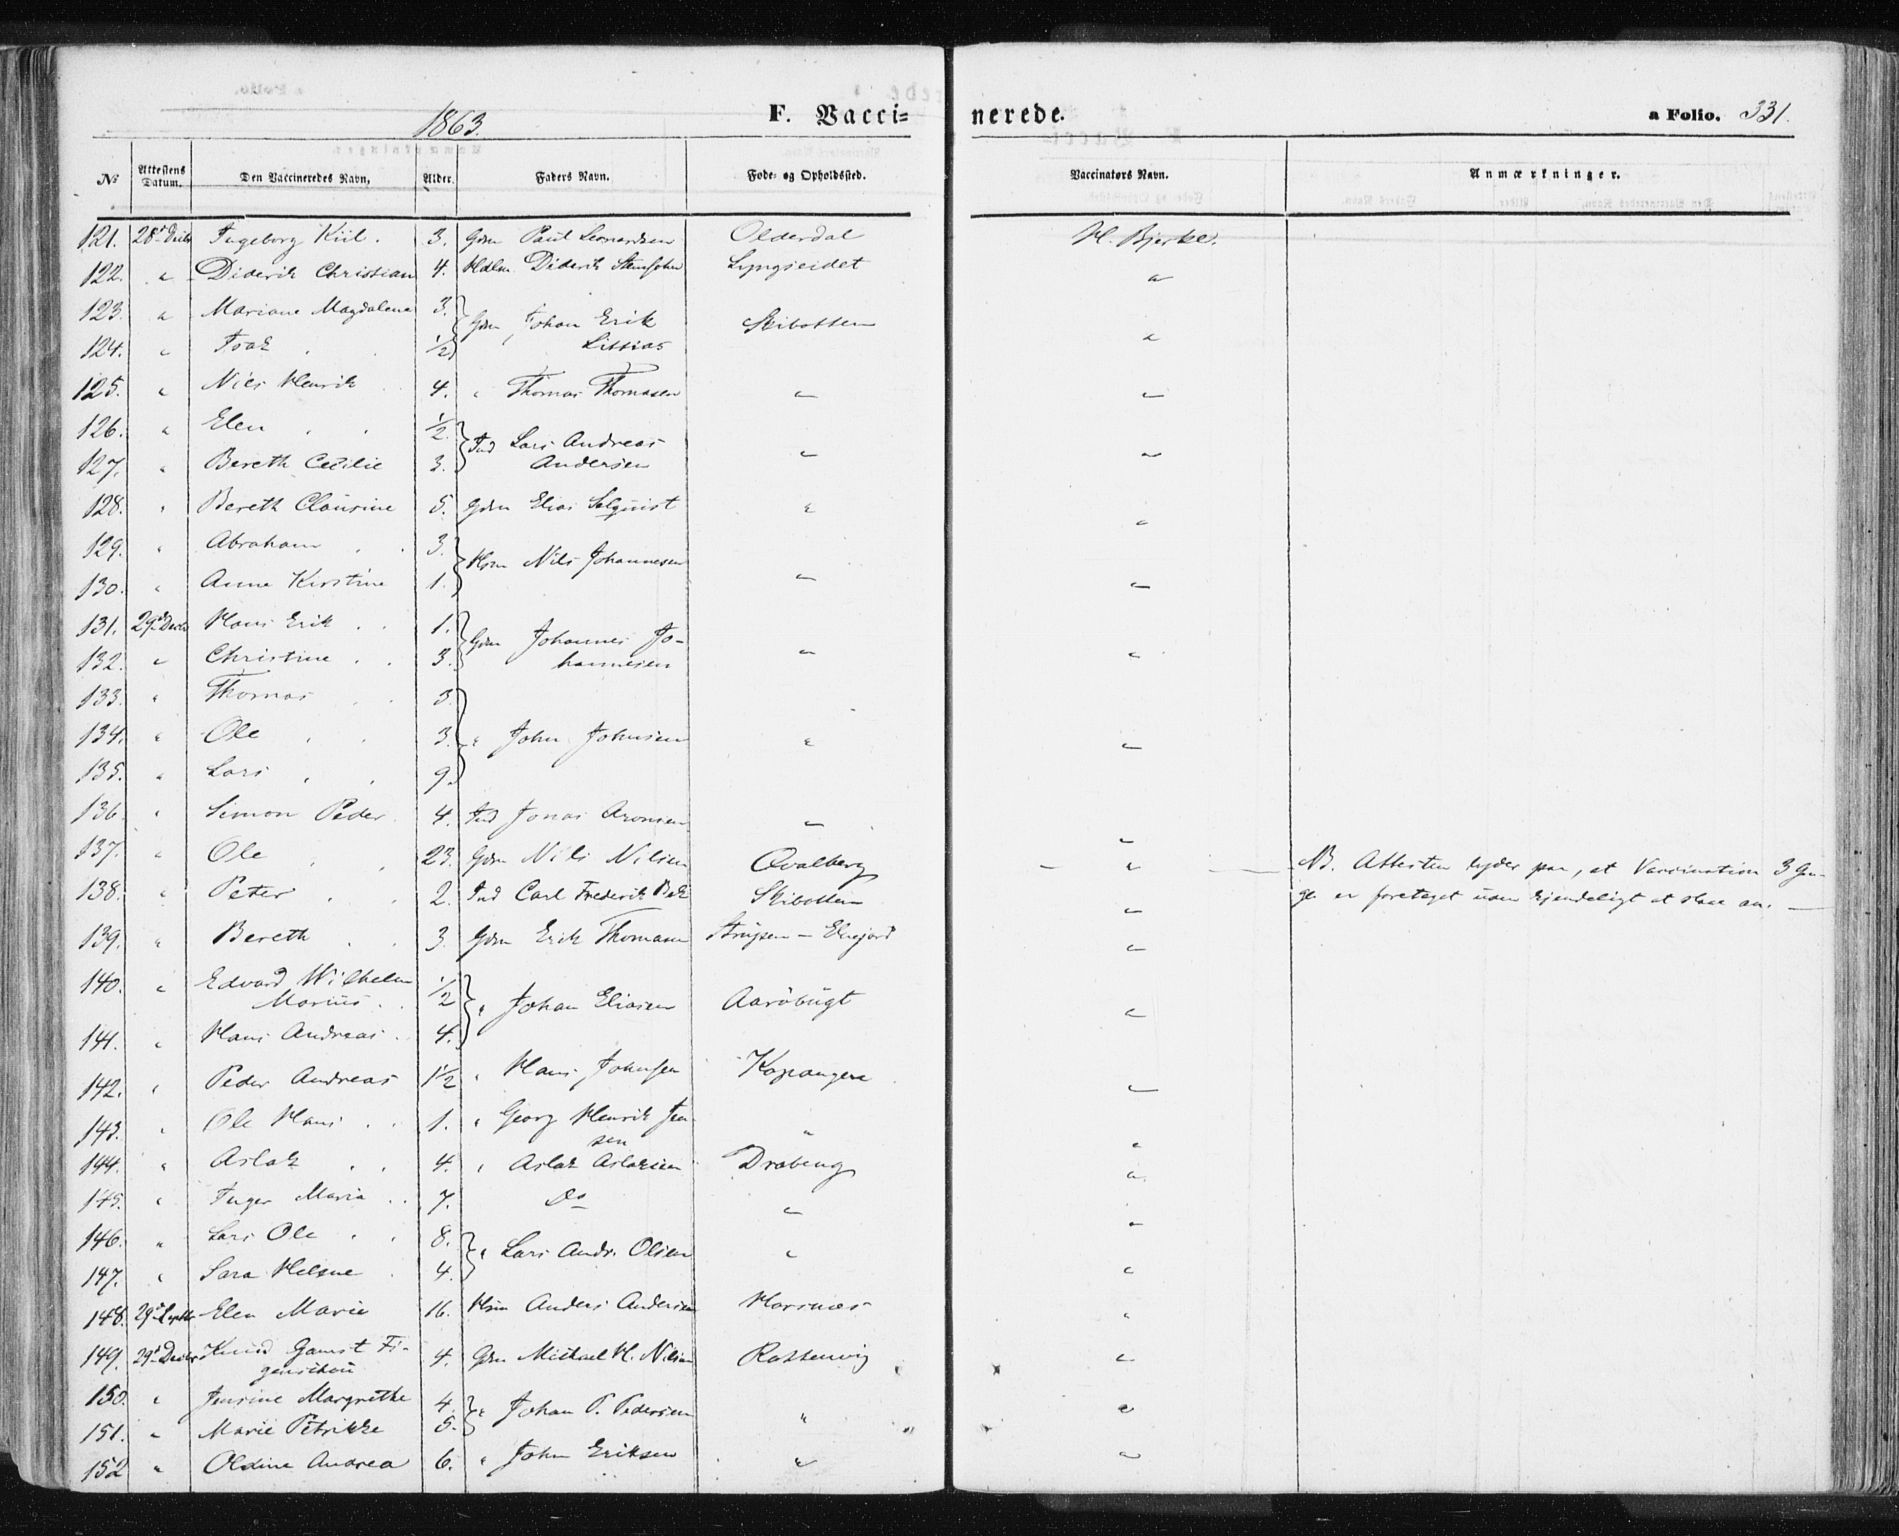 1863.
F. Vacci=
nerede.
a Folio. 331.
No
Attestens Datum.
Den Vaccineredes Navn,
Alder.
Faders Navn.
Føde- og Opholdssted.
Vaccinators Navn.
Anmærkninger.
121. 28d Decbr Ingeborg Kiil. 3. Gdm Paul Leonardsen Olderdal H. Bjerke.
122. " Diderik Christian 4. Hdlm. Diderik Lyngseidet "
123. " Mariane Magdalena 3. Gdm Johan Erik Skibotten "
124. " Isak 1/2 Lissias
125. " Nils Henrik 4. " Thomas Thomasen " "
126. " Elen 1/2 Ind Lars Andreas " "
127. " Bereth Cecilie 3. Andersen
128. " Bereth Clausine 5. Gdm Elias Salquist " "
129. " Abraham 3. Hsm Nils Johannesen " "
130. " Anne Kirstine 1.
131. 29d Decbr Hans Erik 1. Gdm Johannes Jo- " "
132. " Christine 3. hannesen
133. " Thomas 3.
134. " Ole 3. " John Johnsen " "
135. " Lars 9.
136. " Simon Peder 4. Ind Jonas Aronsen " "
137. " Ole 23. Gdm Nils Nilsen Qvalberg " NB. Attesten lyder paa, at Vaccination 3 Gan-
138. " Peter 2. Ind Carl Frederik Beck Skibotten " ge er foretaget uden kjendeligt at slaae an.
139. " Bereth 3. Gdm Erik Thomasen Strupen - Elvejord "
140. " Edvard Wilhelm
Marius 1/2 " Johan Eliasen Aarøbugt "
141. " Hans Andreas 4.
142. " Peder Andreas 1 1/2 " Hans Johnsen Kopangen "
143. " Ole Hans 1. " Georg Henrik Jen-
sen " "
144. " Aslak 4. " Aslak Aslaksen Drabeng "
145. " Inger Maria 7. Do " "
146. " Lars Ole 8. " Lars Andr. Olsen " "
147. " Sara Helene 4. "
148. 29d Septbr Elen Marie 16. Hsm Anders Andersen Horsnæs "
149. 29d Decbr Knud Gamst Fi-
genschou 4. Gdm Michael H. Nilsen Rottenvig "
150. " Jensine Margrethe 4. " Johan P. Pedersen " "
151. " Marie Petrikke 5.
152 " Oldine Andrea 6. " John Eriksen " "